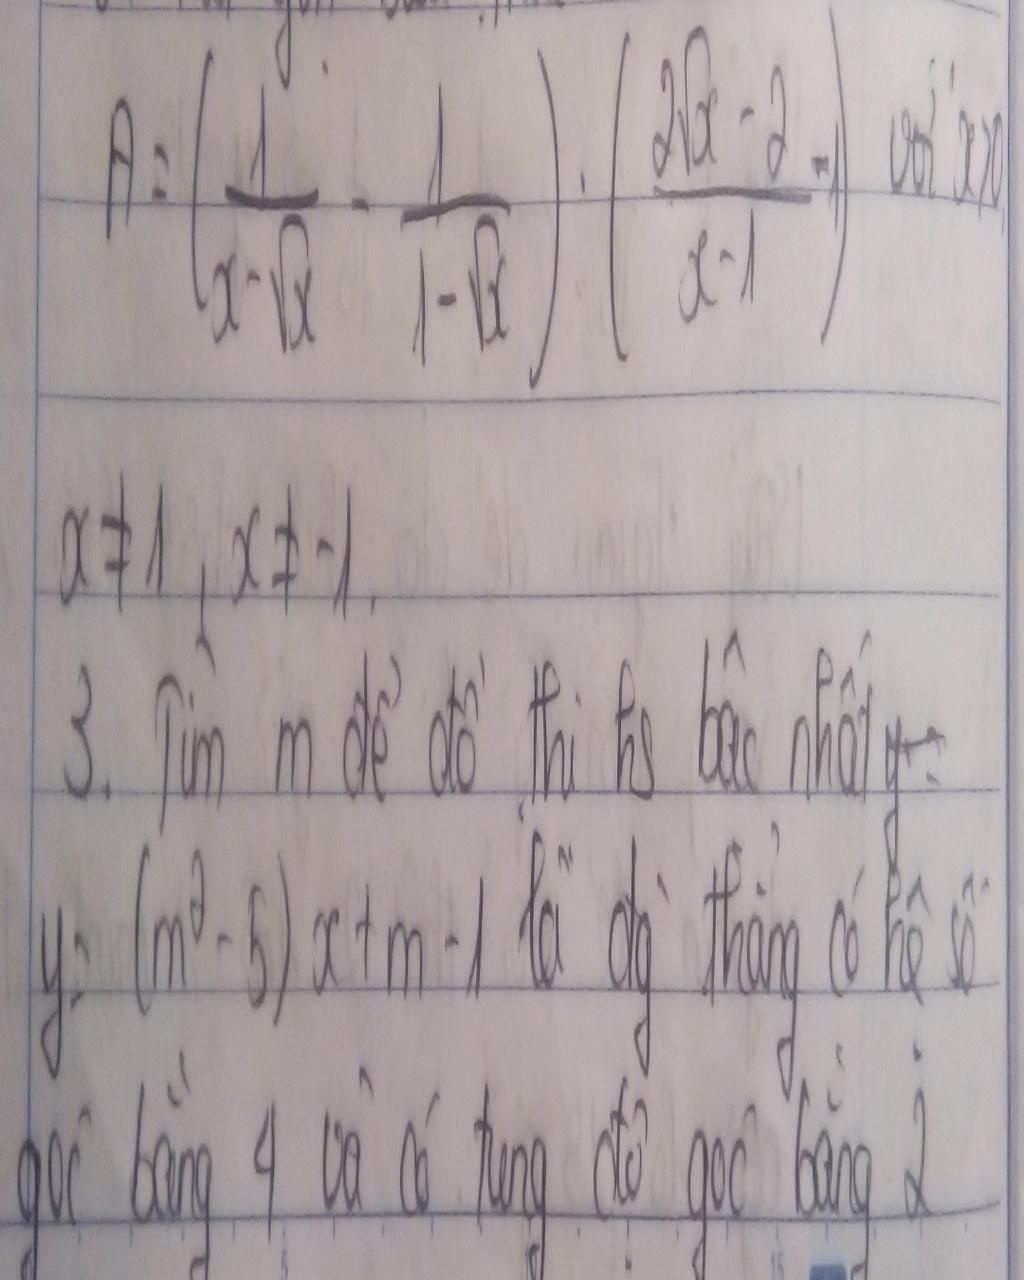 A = (1/(x-√x) - 1/(1-√x)) . ((2√x - 2)/(x-1) - 1) với x>0,
x ≠ 1, x ≠ -1.
3. Tìm m để đồ thị hs bậc nhất y=
y= (m² - 5) x + m - 1 là đg thẳng có hệ số
góc bằng 4 và có tung độ góc bằng 2